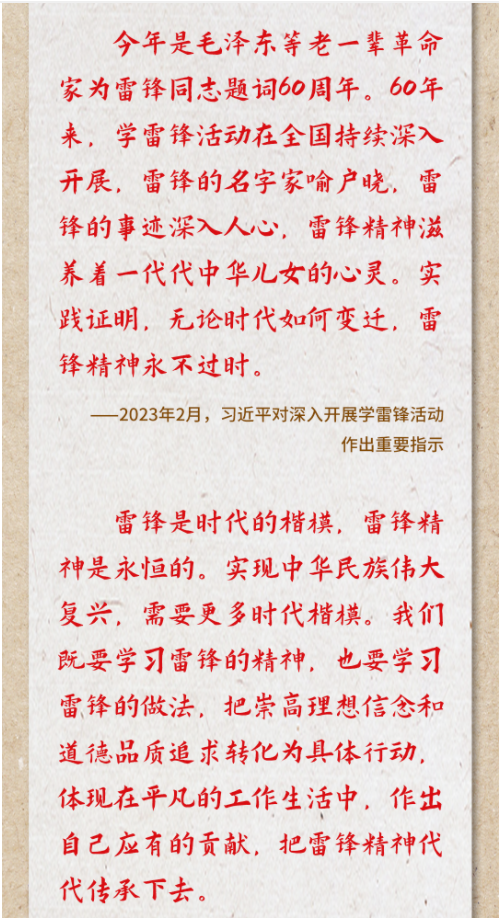 今年是毛泽东等老一辈革命
家为雷锋同志题词60周年。60年
来，学雷锋活动在全国持续深入
开展，雷锋的名字家喻户晓，雷
锋的事迹深入人心，雷锋精神滋
养着一代代中华儿女的心灵。实
践证明，无论时代如何变迁，雷
锋精神永不过时。
——2023年2月，习近平对深入开展学雷锋活动
作出重要指示
雷锋是时代的楷模，雷锋精
神是永恒的。实现中华民族伟大
复兴，需要更多时代楷模。我们
既要学习雷锋的精神，也要学习
雷锋的做法，把崇高理想信念和
道德品质追求转化为具体行动，
体现在平凡的工作生活中，作出
自己应有的贡献，把雷锋精神代
代传承下去。